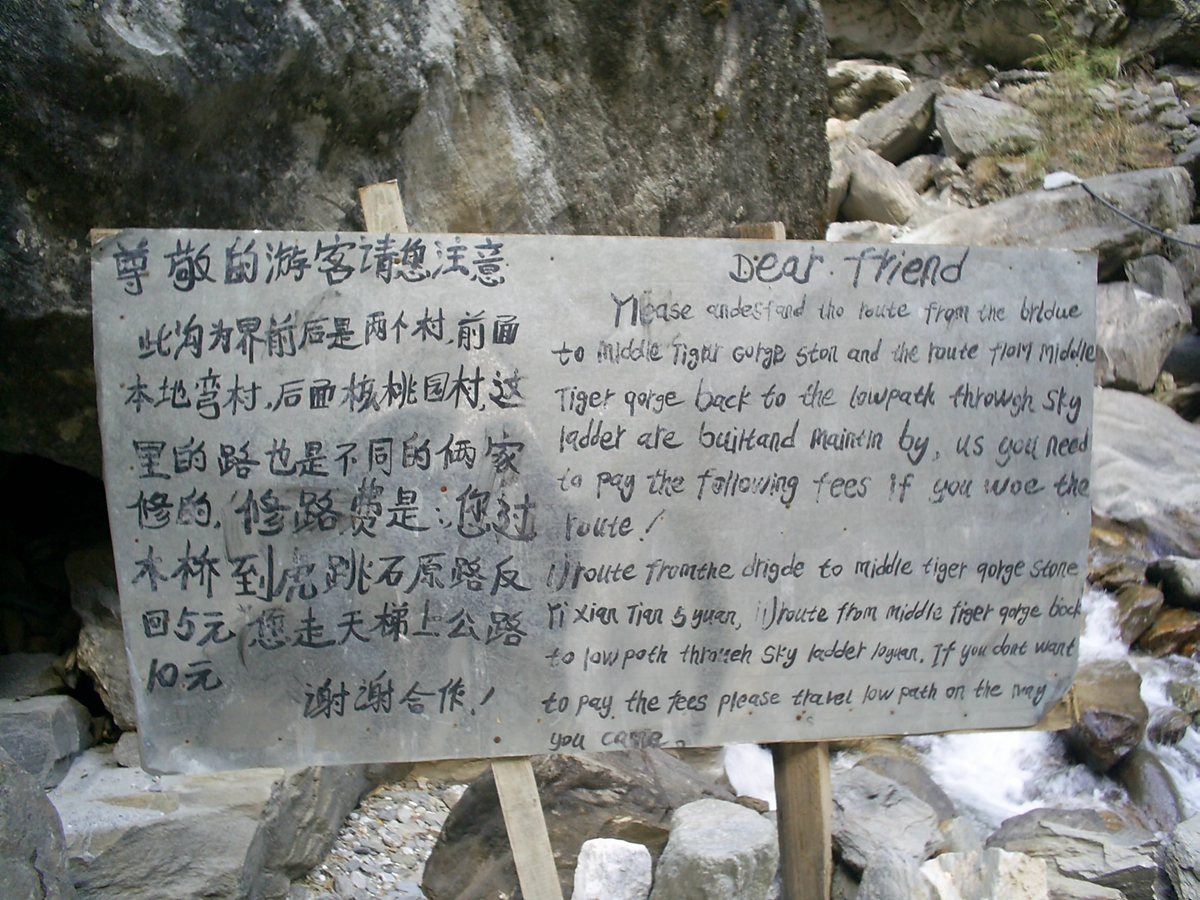 尊敬的游客请您注意
此沟为界前后是两个村.前面
本地弯村,后面核桃园村,这
里的路也是不同的俩家
修的,修路费是:您过
木桥到虎跳石原路反
回5元您走天梯上公路
10元
谢谢合作!
Dear. friend
Please andestand tho route from the bridue
to Middle Tigar Gorge ston and the route flom Middle
Tiger gorge back to the lowpath throwgh Sky
ladder are builtand Maintin by, us you need
to pay the following fees if you woe the
route!
i)route fromthe drigde to middle tiger gorge stone
Yi xian Tian 5 yuan, ii)route from middle tiger gorge back
to low path throueh Sky ladder 10yuan. If you dont want
to pay the fees please travel low path on the way
you came.